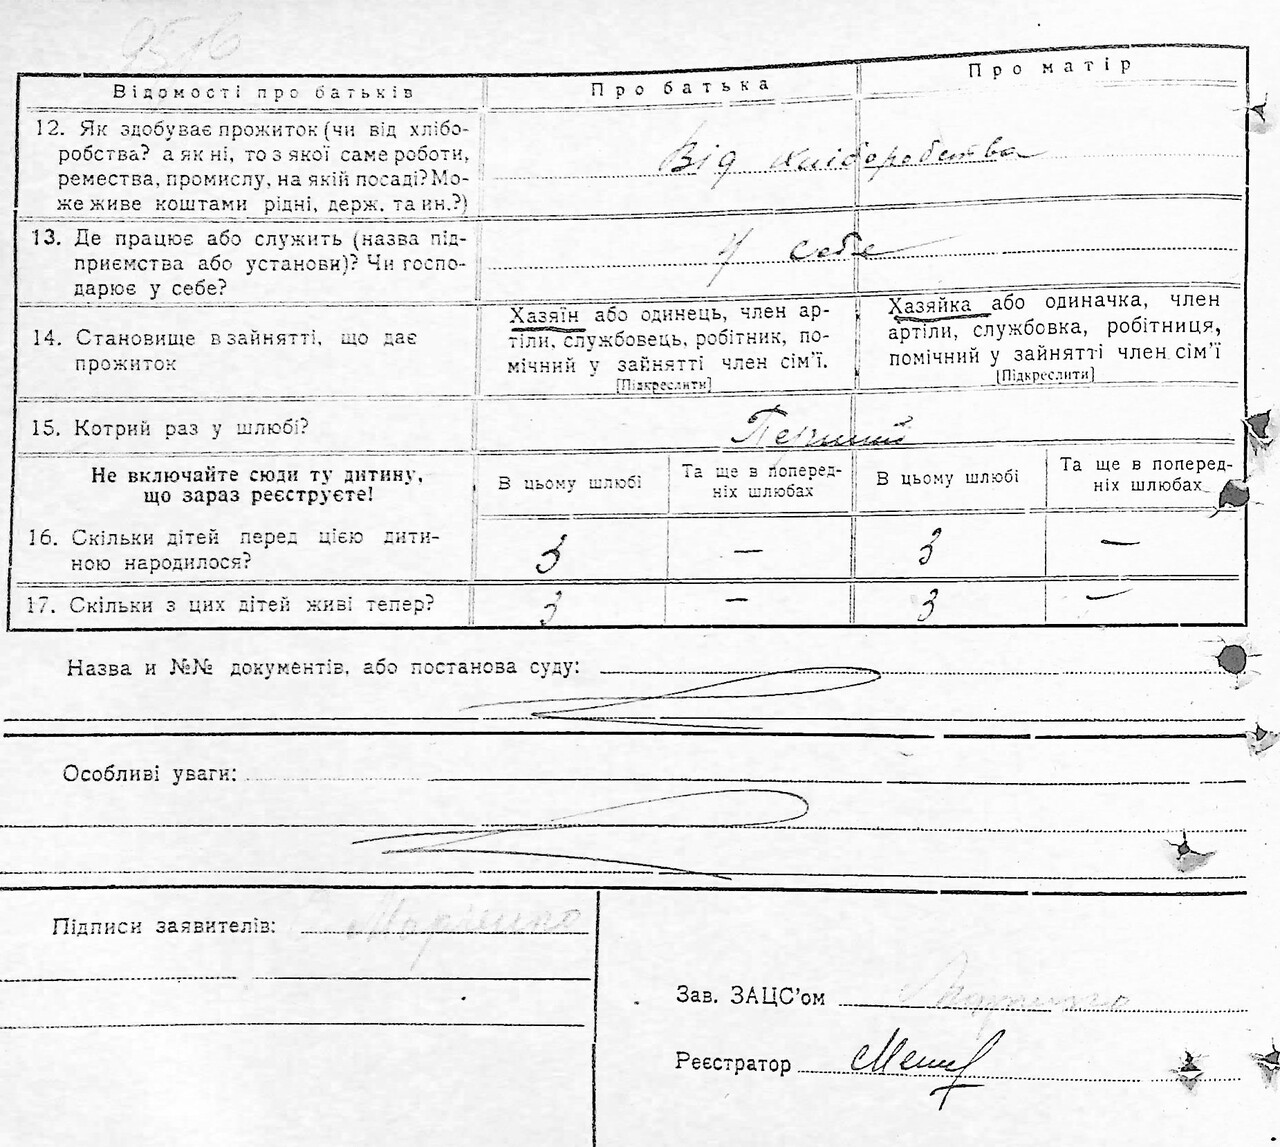 Відомості про батьків Про батька Про матір
12. Як здобуває прожиток (чи від хлібо-
робства? а як ні, то з якої саме роботи,
ремества, промислу, на якій посаді? Мо-
же живе коштами рідні, держ. та ин.?)
Від хліборобства
13. Де працює або служить (назва під-
приємства або установи)? Чи госпо-
дарює у себе?
У себе
14. Становище в зайнятті, що дає
прожиток
Хазяїн або одинець, член ар-
тіли, службовець, робітник, по-
мічний у зайнятті член сім'ї.
[Підкреслити]
Хазяйка або одиначка, член
артіли, службовка, робітниця,
помічний у зайнятті член сім'ї
[Підкреслити]
15. Котрий раз у шлюбі?
Перший
Не включайте сюди ту дитину,
що зараз реєструєте!
В цьому шлюбі
Та ще в поперед-
ніх шлюбах
В цьому шлюбі
Та ще в поперед-
ніх шлюбах
16. Скільки дітей перед цією дити-
ною народилося?
3 — 3 —
17. Скільки з цих дітей живі тепер?
3 — 3 —
Назва и №№ документів, або постанова суду:
Особливі уваги:
Підписи заявителів:
Зав. ЗАЦС'ом
Реєстратор